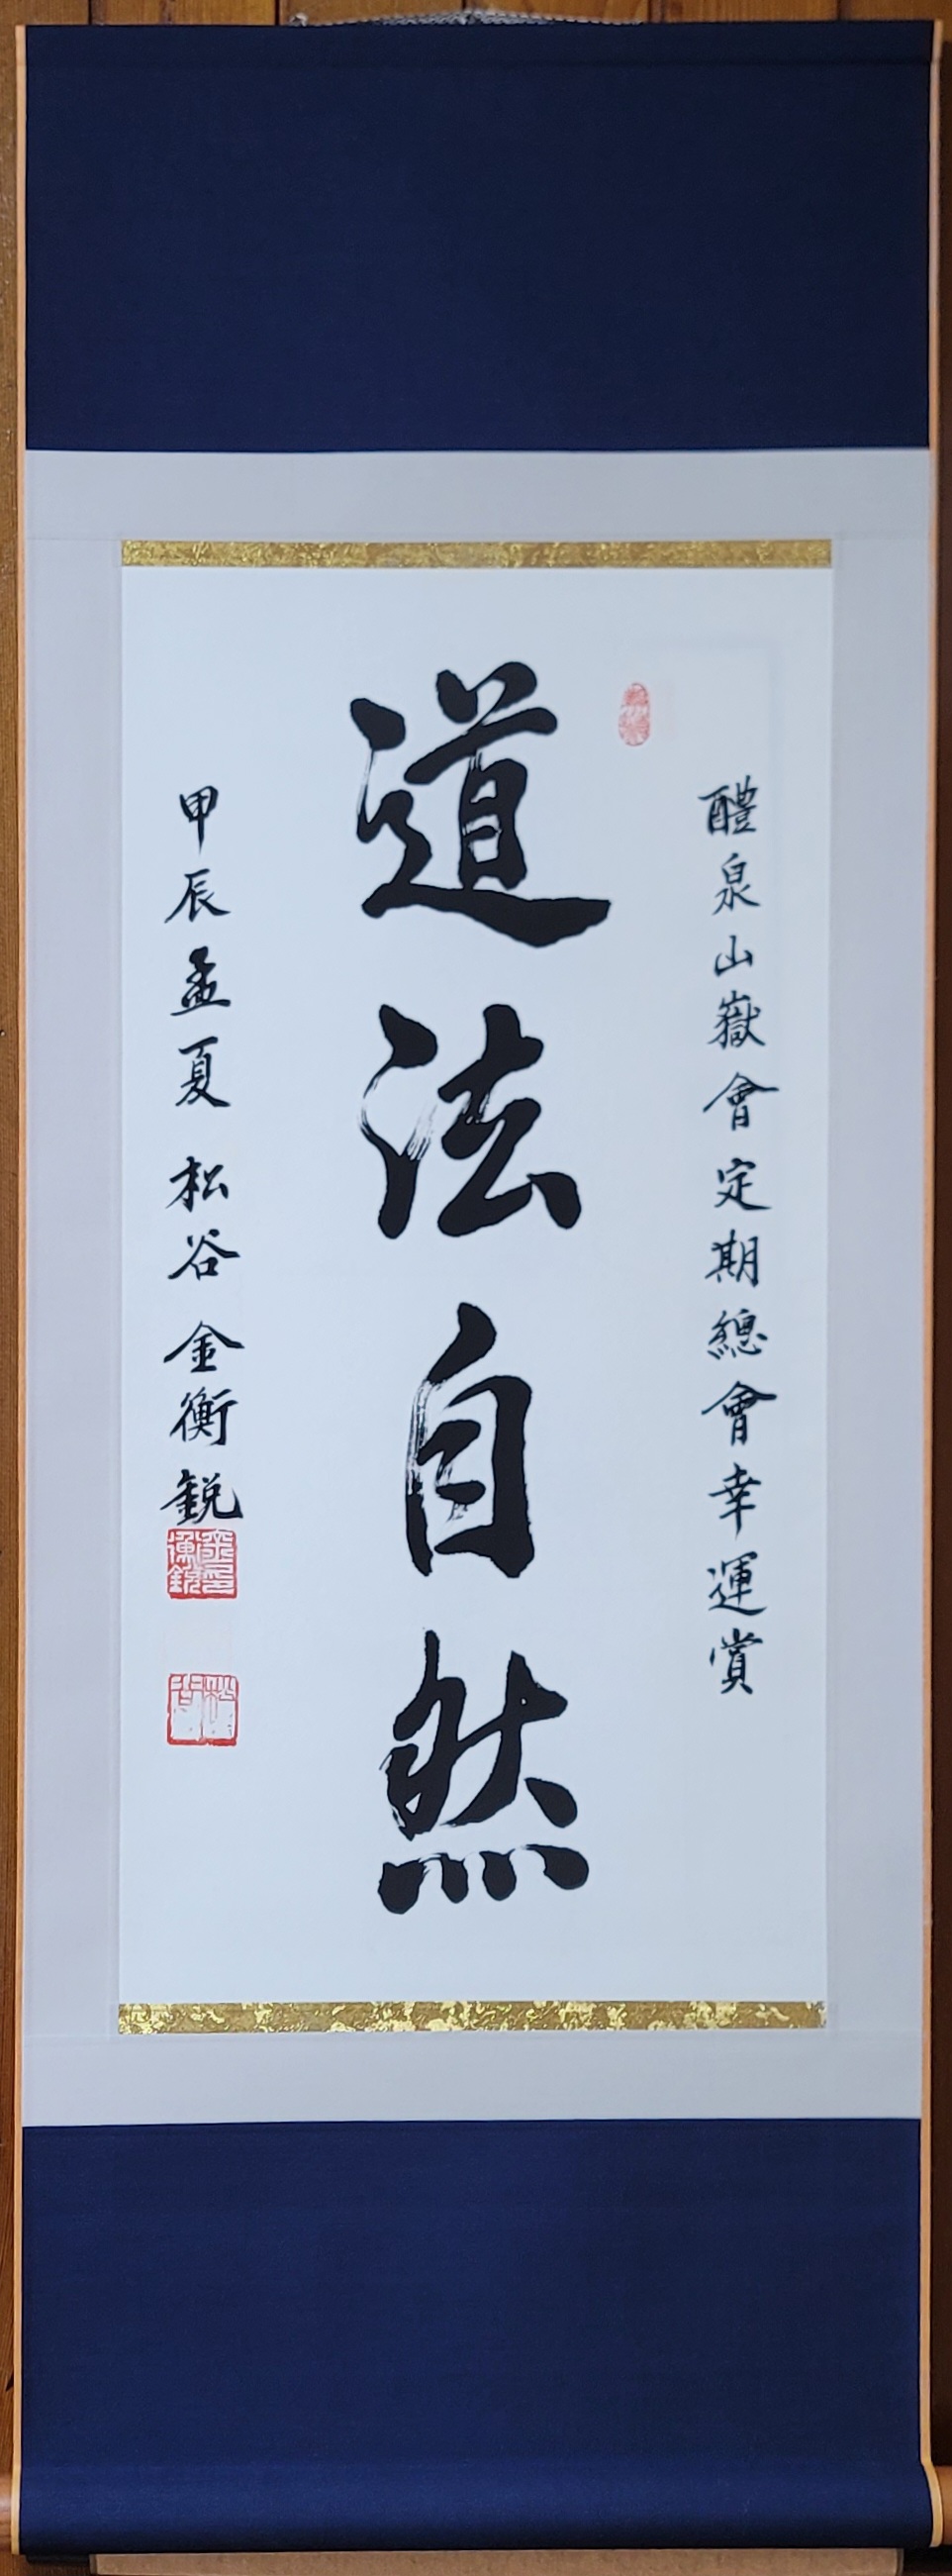 醴泉山嶽會定期總會幸運賞
道法自然
甲辰孟夏 松谷 金衡銳